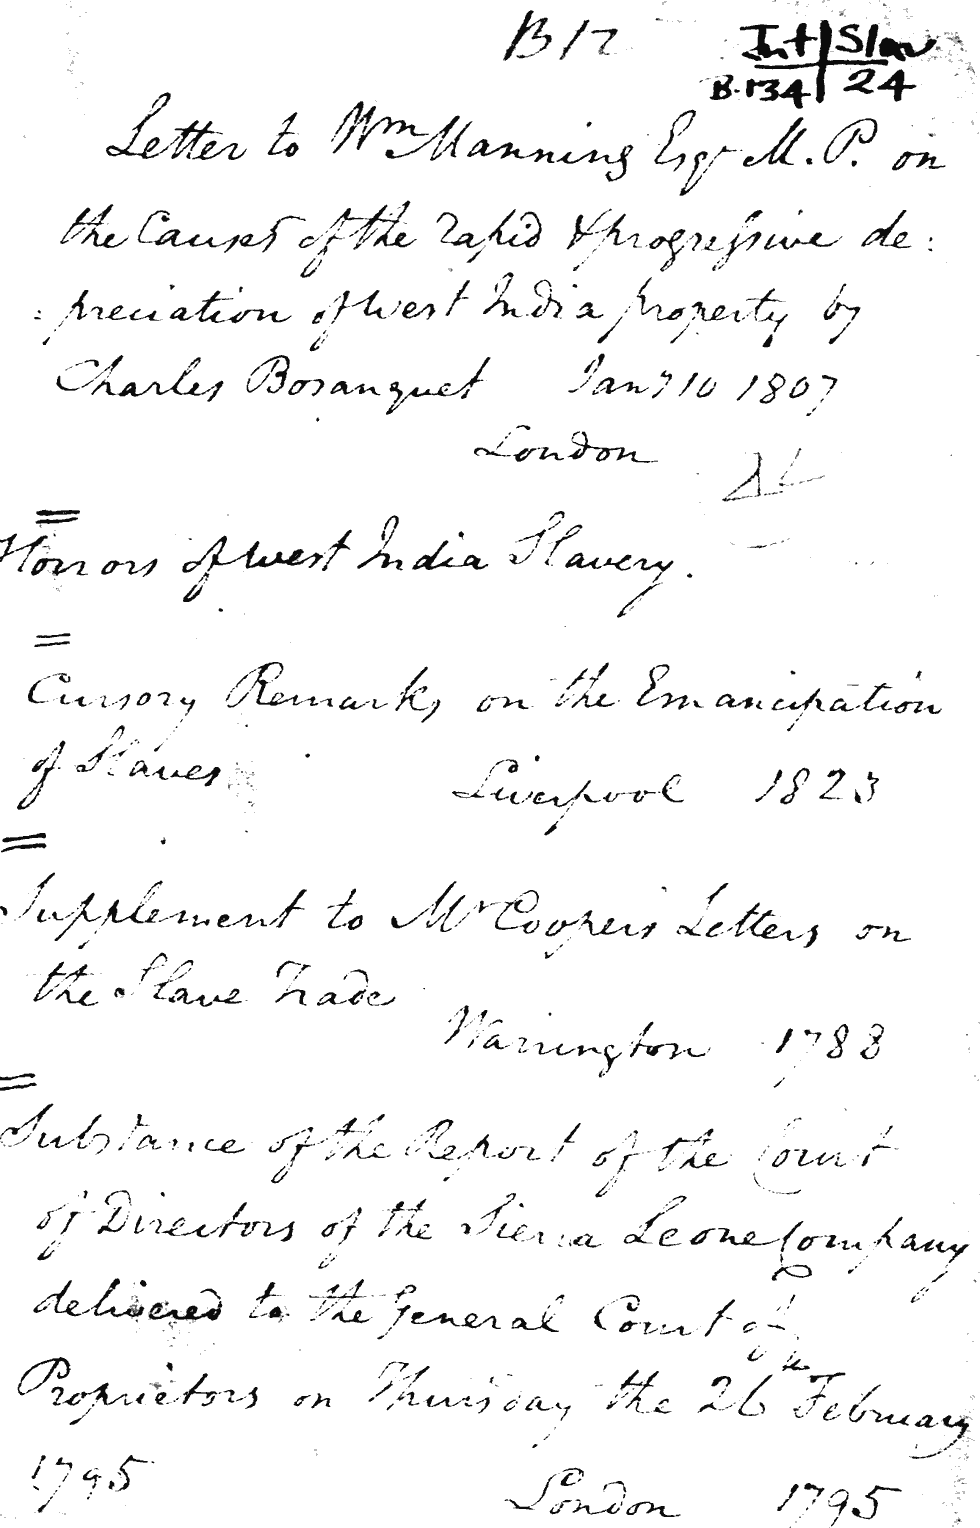 B 17
Int Slav
B.134 24
Letter to Wm Manning Esqr M.P. on
the Causes of the rapid & progressive de:
:preciation of West India property by
Charles Bosanquet Jany 10 1807
London
Horrors of West India Slavery.
Cursory Remarks on the Emancipation
of Slaves
Liverpool 1823
Supplement to Mr Cooper's Letters on
the Slave Trade
Warrington 1788
Substance of the Report of the Court
of Directors of the Sierra Leone Company
delivered to the General Court of
Proprietors on Thursday the 26th February
1795
London 1795